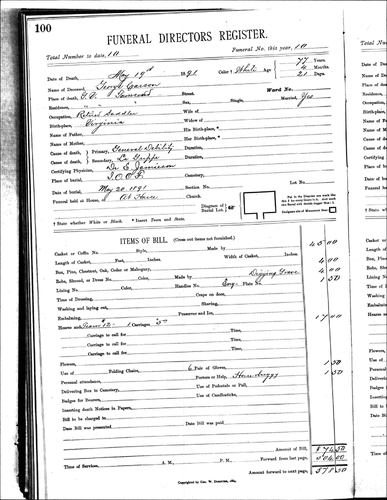 100
FUNERAL DIRECTORS REGISTER.
Total Number to date, 10 Funeral No. this year, 10
Date of Death, May 19th 1891 Color † White Age 77 Years
4 Months
21 Days.
Name of Deceased, George Carson
Place of death, Street. Ward No.
Residence, " " Sex, Single, Married, Yes
Occupation, Retired Saddler Wife of
Birth-place, Virginia Widow of
Name of Father, His Birth-place, *
Name of Mother, Her Birth-place, *
Cause of death, Primary, General Debility Duration,
Cause of death, Secondary, La Grippe Duration,
Certifying Physician, Dr E. Jamison
Place of burial, I.O.O.F. Cemetery,
Date of burial, May 20 1891 Section No. Lot No.
Funeral held at House, At House Diagram of Burial Lot,
† State whether White or Black. * Insert Town and State.
ITEMS OF BILL. (Cross out items not furnished.)
Casket or Coffin No. Style, 45 00
Length of Casket, Feet, Inches. Width of Casket, Inches.
Box, Pine, Chestnut, Oak, Cedar or Mahogany, 4 00
Robe, Shroud, or Dress No. Color, Made by Digging Grave 4 00
Lining No. Color, Handles No. Eng. Plate 1 50
Time of Dressing, Crape on door,
Washing and laying out, Shaving,
Embalming, Preserver and Ice,
Hearse and Carriages, 17 00
Carriage to call for Time,
Carriage to call for Time,
Carriage to call for Time,
Flowers,
Use of Folding Chairs, 6 Pair of Gloves, 1 50
Personal attendance, Porters or Help, 1 50
Delivering Box to Cemetery, Use of Pedestals or Pall,
Badges for Bearers, Use of Candlesticks,
Inserting death Notices in Papers,
Bill to be charged to
Date Bill was presented Date Bill was paid
Amount of Bill, $ 74 50
Time of Services, A. M., P. M., Forward from last page, $ 504 00
Amount forward to next page, $ 578 50